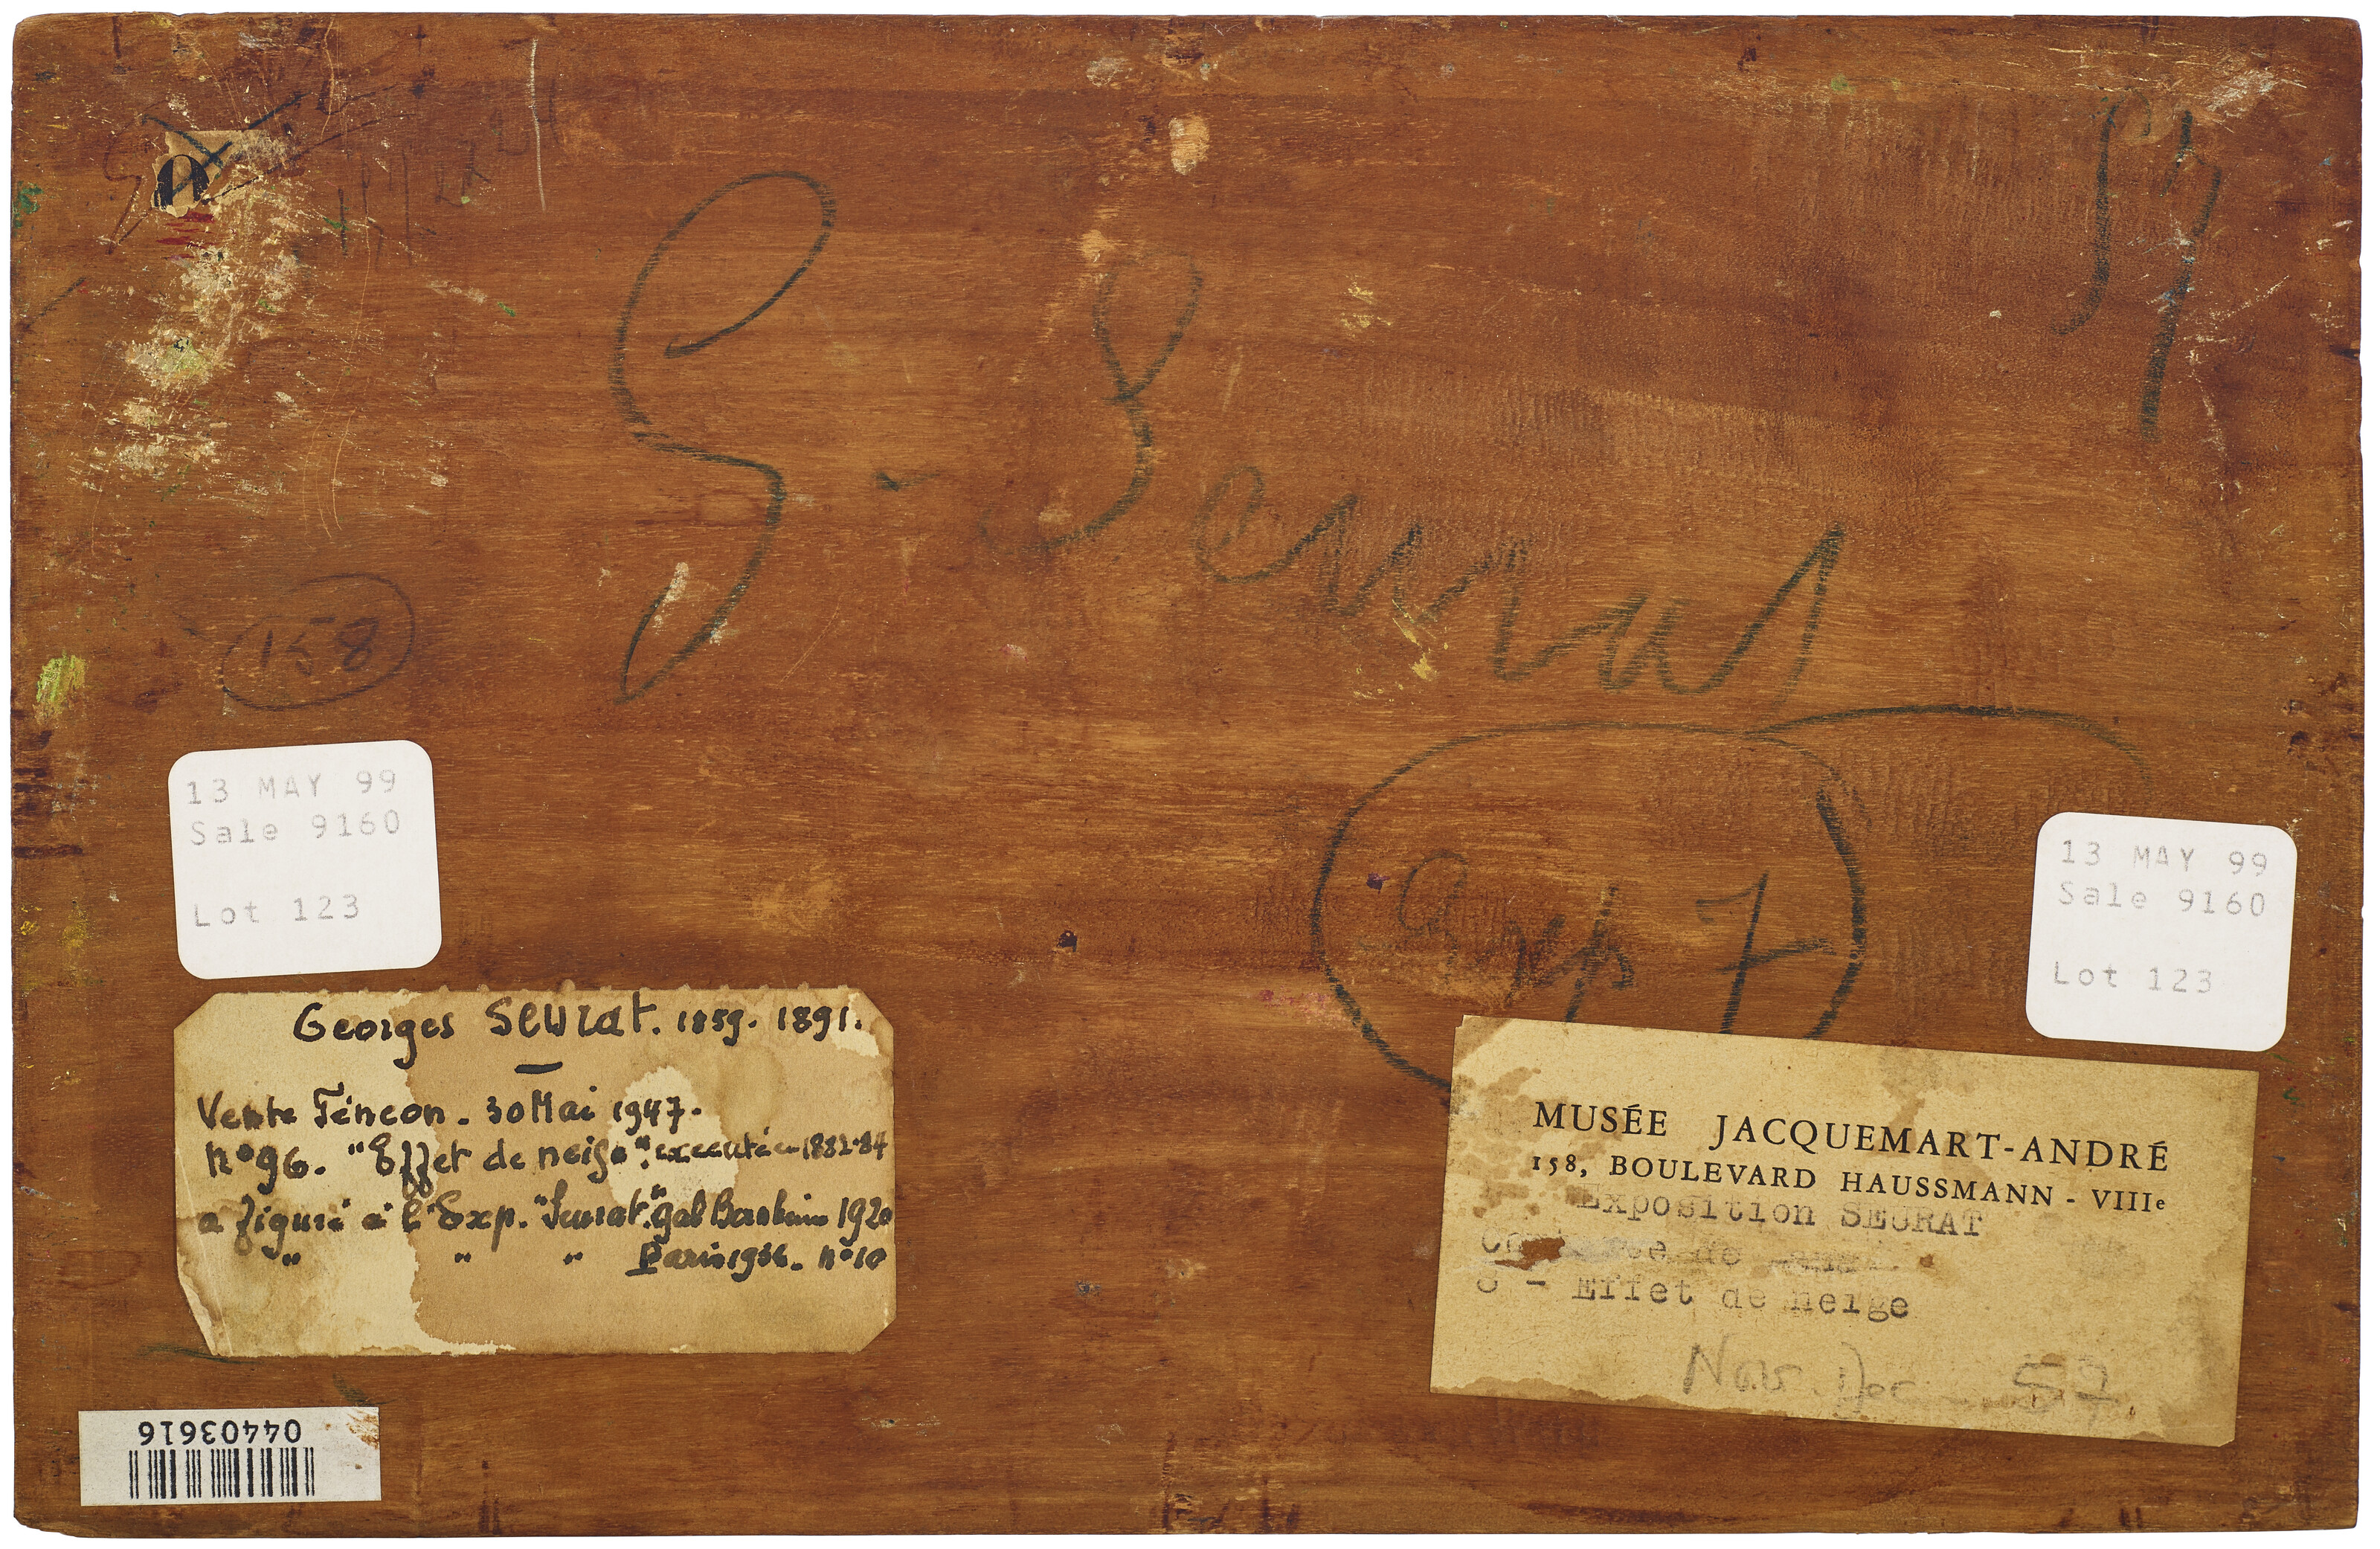 57
G. Seurat
158
Exp 7
13 MAY 99
Sale 9160
Lot 123
13 MAY 99
Sale 9160
Lot 123
Georges Seurat. 1859. 1891.
Vente Fénéon. 30 Mai 1947.
n° 96. "Effet de neige". executé en 1882-84
a figuré à l'Exp. "Seurat" gal Bernheim 1920
" " " Paris 1936. n° 10
MUSÉE JACQUEMART-ANDRÉ
158, BOULEVARD HAUSSMANN - VIIIe
Exposition SEURAT
de
- Effet de neige
Nov. Dec 57
04403616